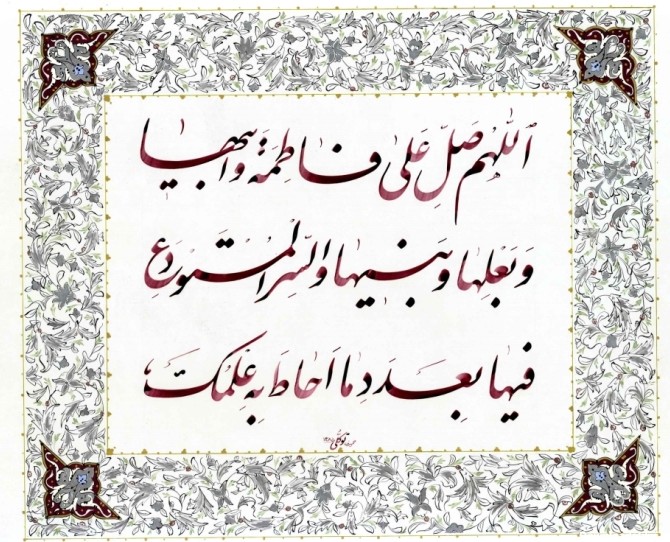 اَللّٰهُمَّ صَلِّ عَلىٰ فاطِمَةَ وَاَبیها
وَبَعْلِها وَ بَنیها وَالسِّرِّ الْمُسْتَوْدَعِ
فیها بِعَدَدِ ما اَحاطَ بِهِ عِلْمُکَ